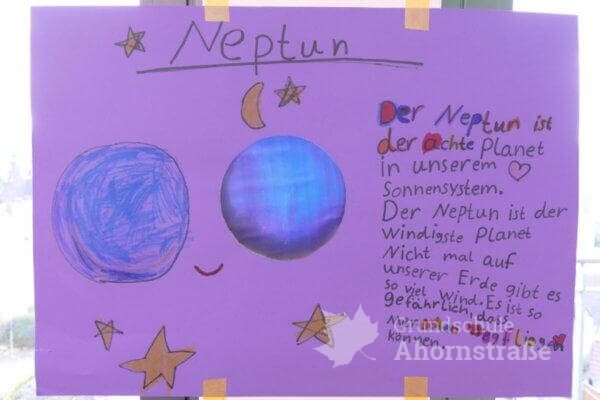 Neptun
Der Neptun ist
der achte Planet
in unserem
Sonnensystem.
Der Neptun ist der
windigste Planet
Nicht mal auf
unserer Erde gibt es
so viel Wind. Es ist so
gefährlich, dass
wegfliegen
können.
Grundschule
Ahornstraße